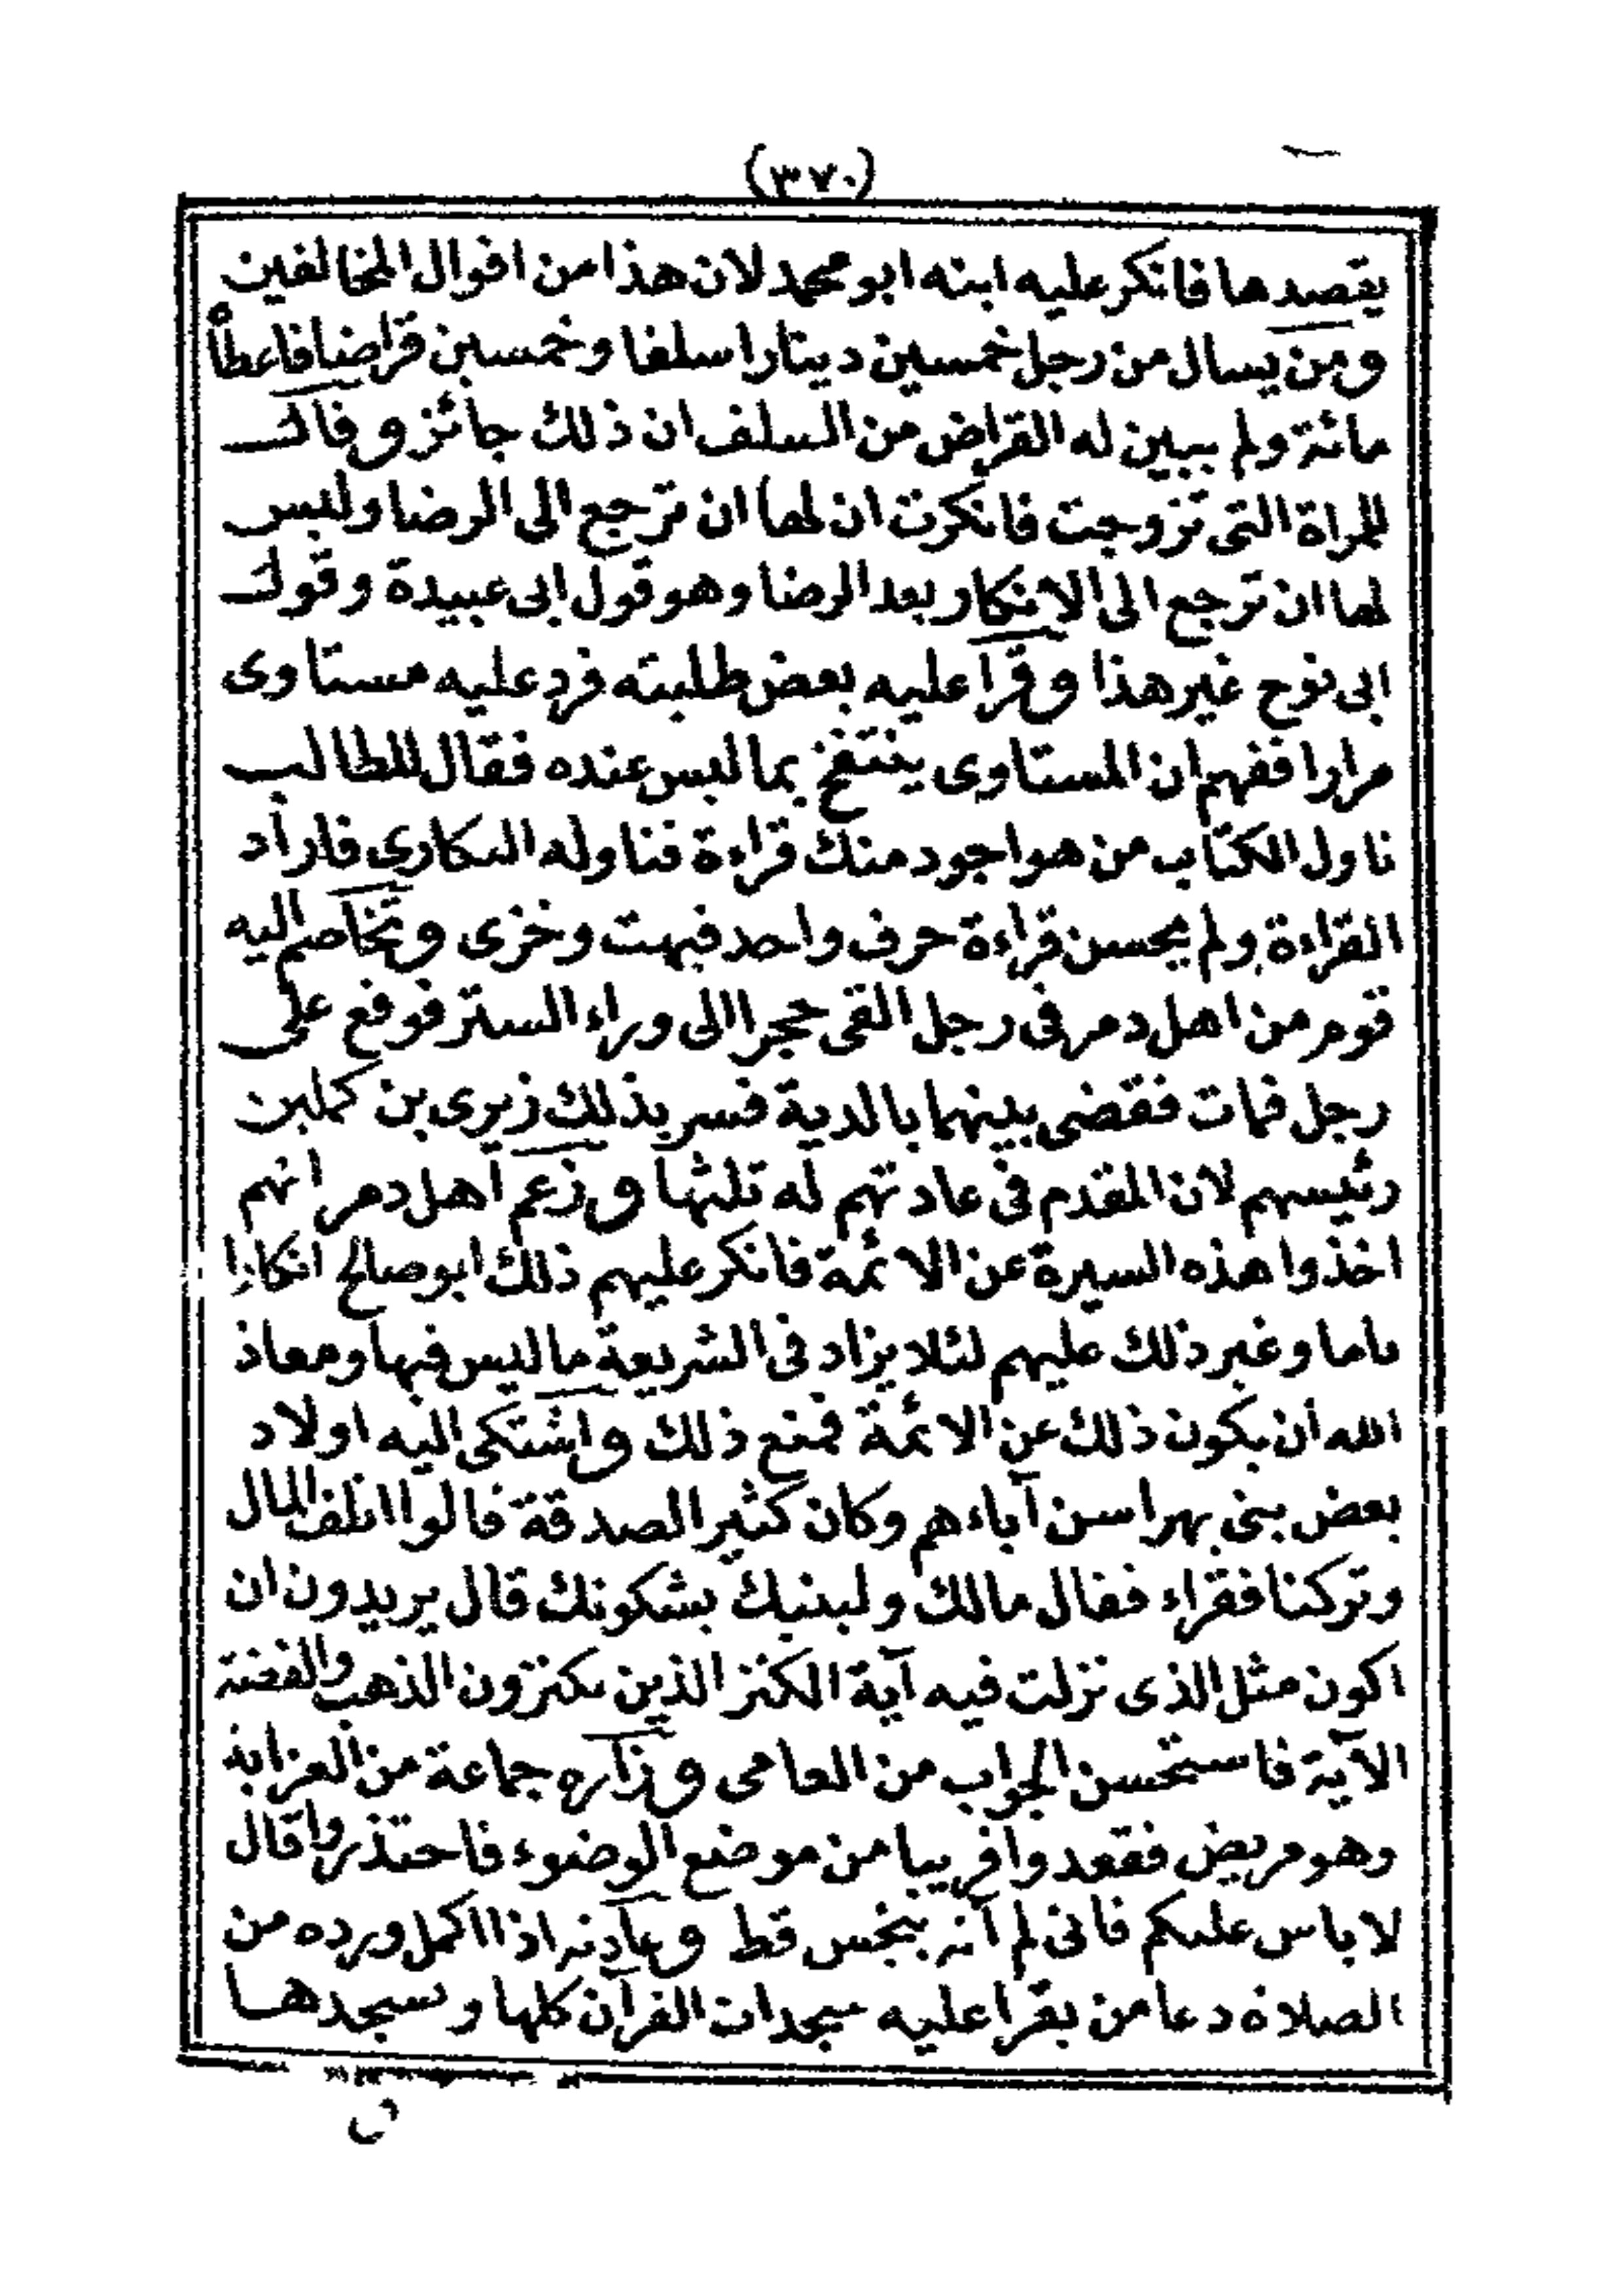 (٣٧٠)
يقصدها فانكر عليه ابنه ابو محمد لان هذا من اقوال المخالفين
ومن يسال من رجل خمسين دينارا سلفا وخمسين قراضا فاعطاه
مائة ولم يبين له القراض من السلف ان ذلك جائز وقال
للمراة التى تزوجت فانكرت ان لها ان ترجع الى الرضا وليس
لها ان ترجع الى الانكار بعد الرضا وهو قول ابى عبيدة وقول
ابى نوح غير هذا وقرأ عليه بعض طلبته فرد عليه مستاوى
مرارا ففهم ان المستاوى ينتفخ بما ليس عنده فقال للطالب
ناول الكتاب من هو اجود منك قراءة فناوله البكارى فاراد
القراءة ولم يحسن قراءة حرف واحد فبهت وخزى وتخاصم اليه
قوم من اهل دمر فى رجل القى حجرا الى وراء الستر فوقع على
رجل فمات فقضى بينهما بالدية فسر بذلك زيرى بن كملين
رئيسهم لان المقدم فى عادتهم له ثلثها وزعم اهل دمر انهم
اخذوا هذه السيرة عن الائمة فانكر عليهم ذلك ابو صالح انكارا
تاما وغير ذلك عليهم لئلا يزاد فى الشريعة ما ليس فيها ومعاذ
الله أن يكون ذلك عن الائمة فمنع ذلك واشتكى اليه اولاد
بعض بنى يهراسن آباءهم وكان كثير الصدقة قالوا اتلف المال
وتركنا فقراء فقال مالك ولبنيك يشكونك قال يريدون ان
اكون مثل الذى نزلت فيه آية الكنز الذين يكنزون الذهب والفضة
الآية فاستحسن الجواب من العامى وزاره جماعة من العزابة
وهو مريض فقعدوا قريبا من موضع الوضوء فاحتذروا قال
لا باس عليكم فانى لم آته بنجس قط وعادته اذا اكمل ورده من
الصلاة دعا من يقرا عليه سجدات القرآن كلها وسجدها